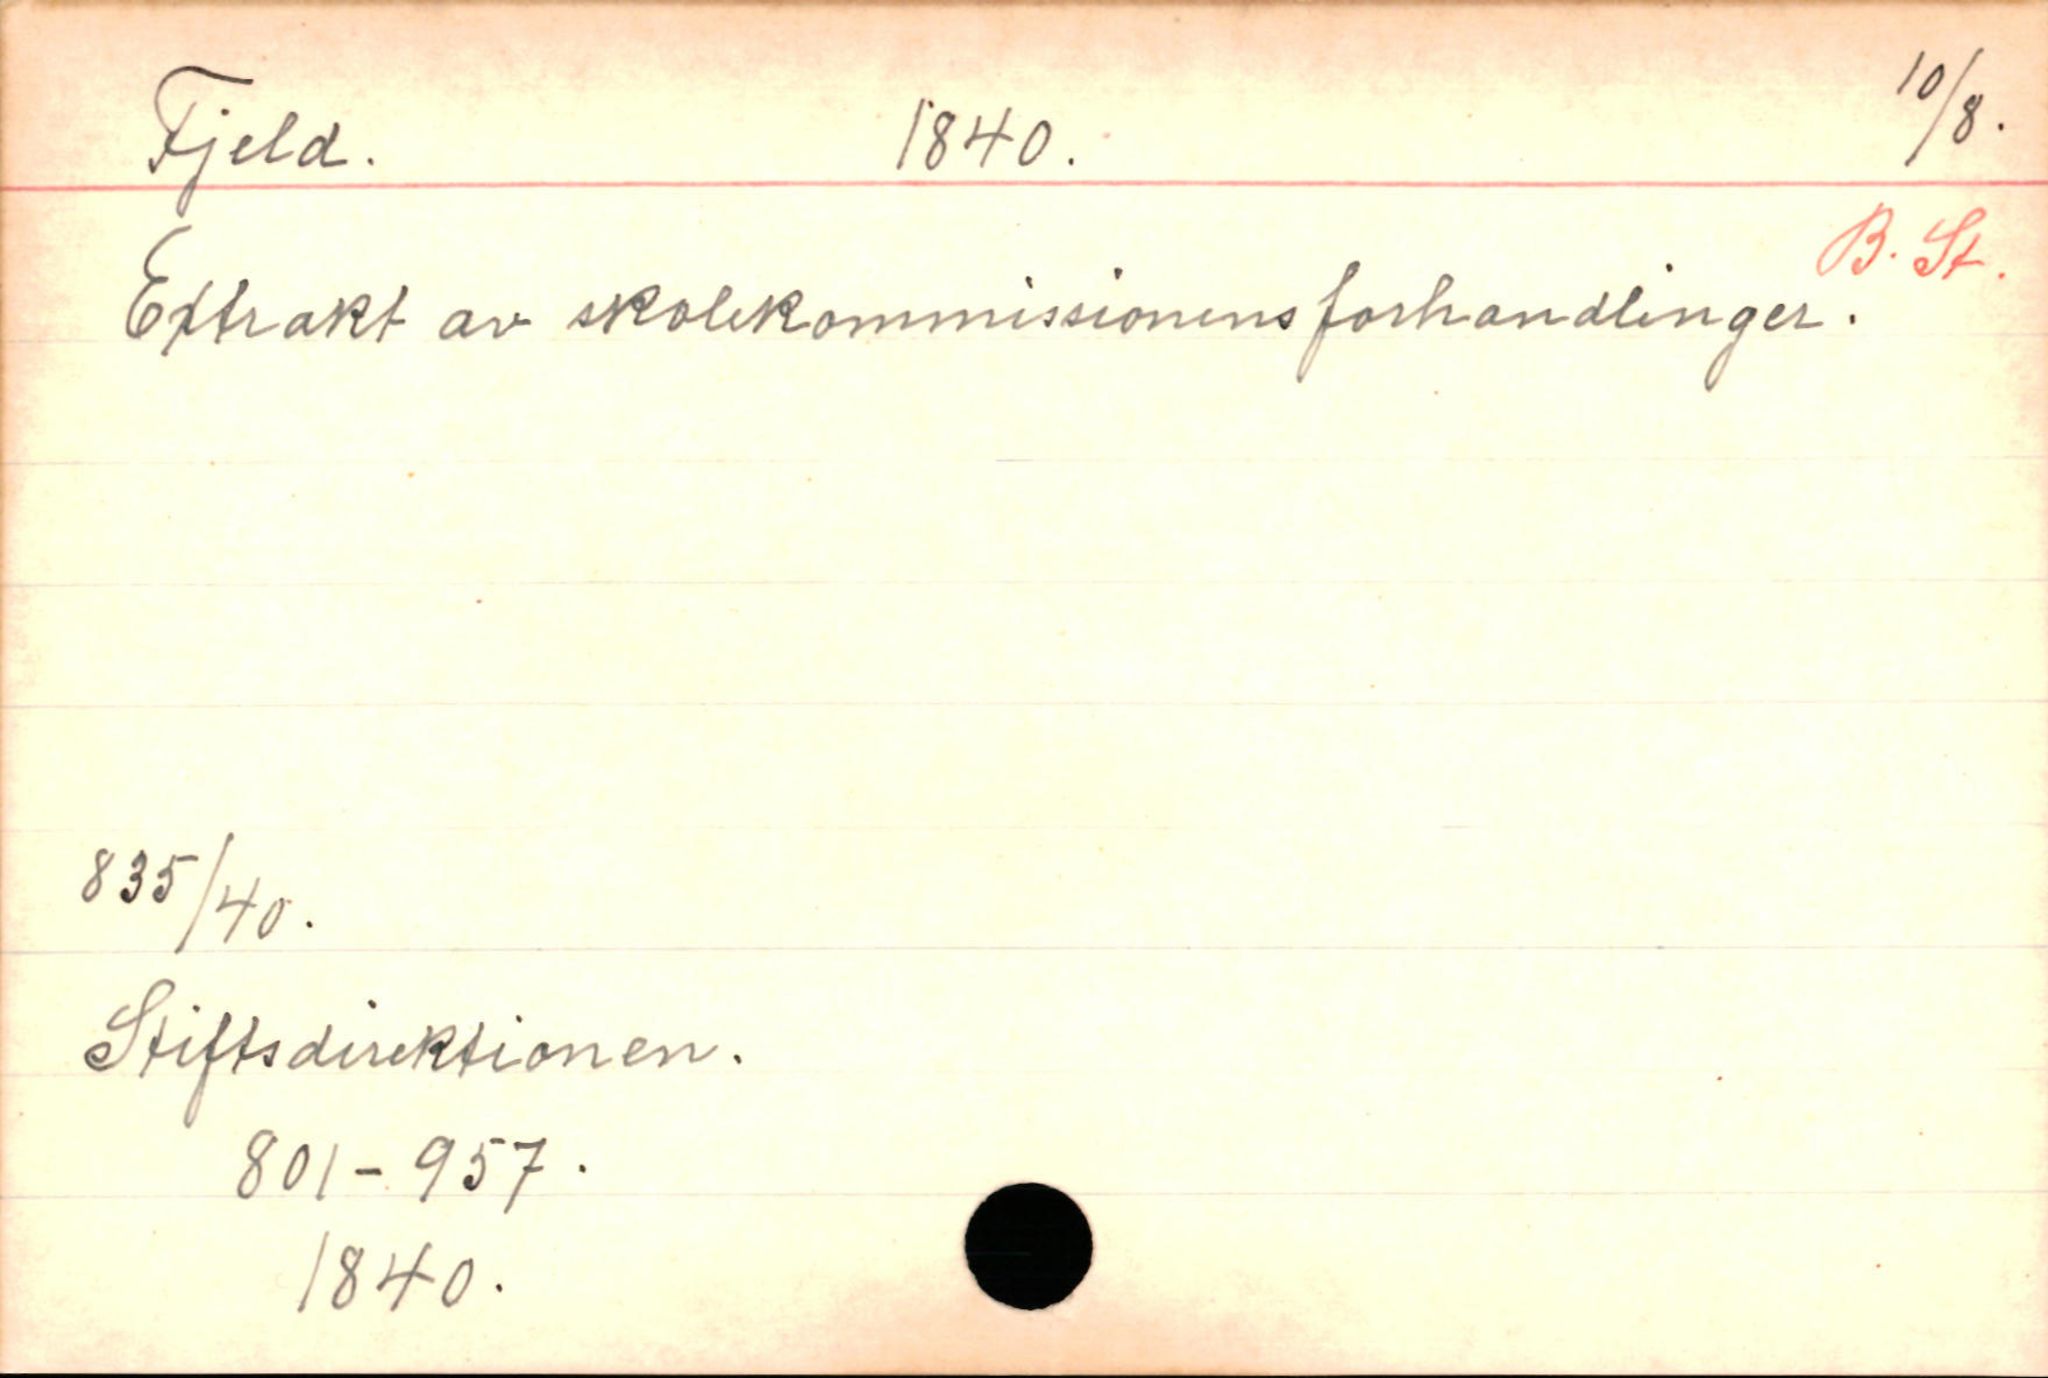 Fjeld. 1840. 10/8.
B. St.
Extrakt av skolekommissionens forhandlinger.
835/40.
Stiftsdirektionen.
801-957.
1840.